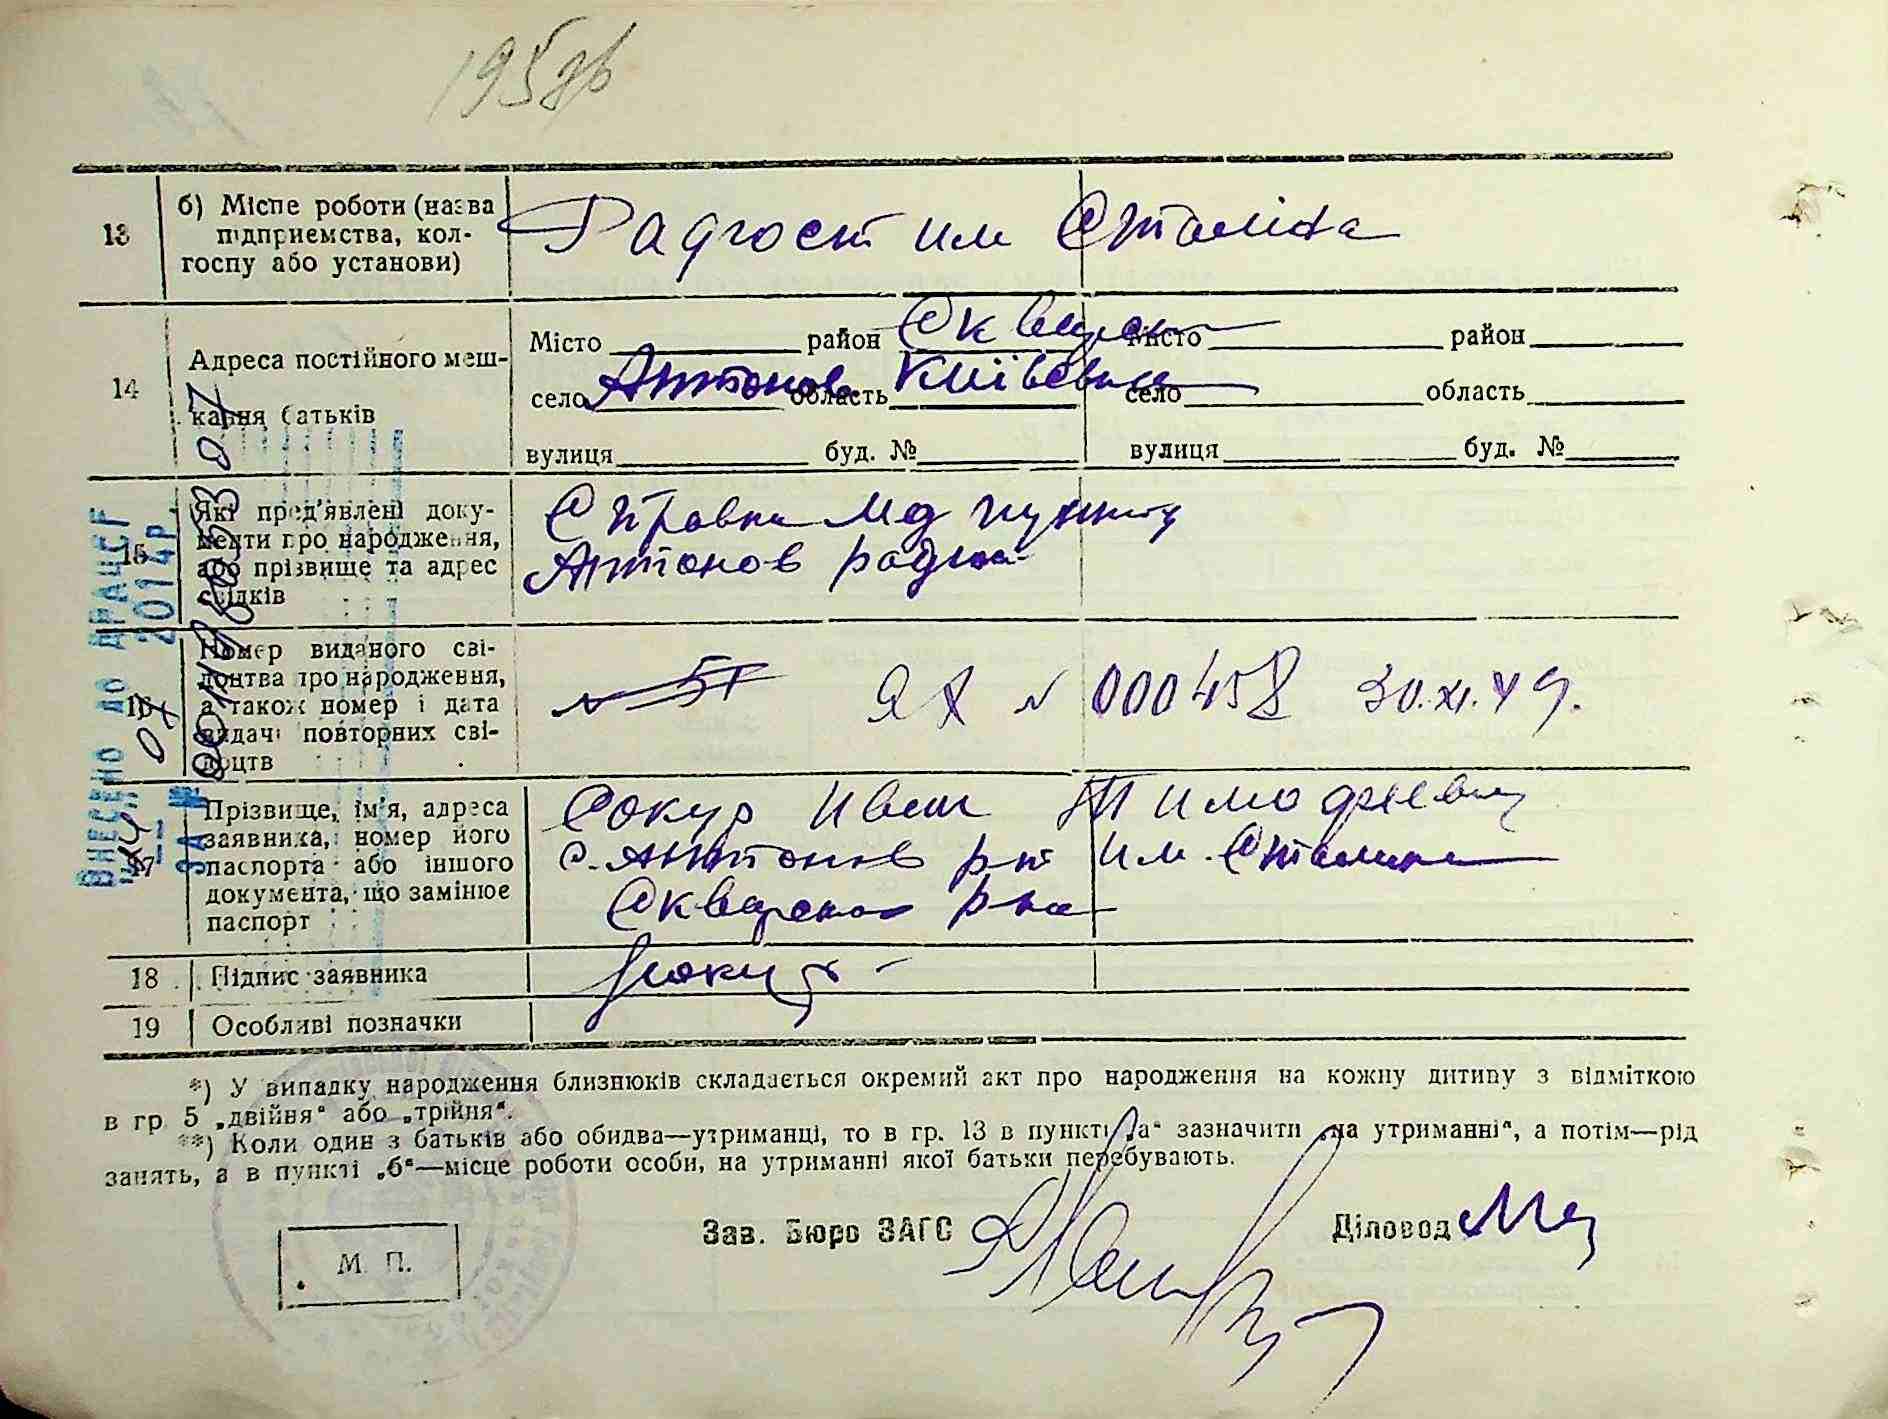 195зв
13
б) Місце роботи (назва
підприємства, кол-
госпу або установи)
Радгосп им Сталіна
14
Адреса постійного меш-
кання батьків
Місто район Сквирск Місто район
село Антонов область Київська село область
вулиця буд. № вулиця буд. №
15
Які пред'явлені доку-
менти про народження,
або прізвище та адрес
свідків
Справка Мед пункту
Антонов
16
Номер виданого сві-
доцтва про народження,
а також номер і дата
видачі повторних сві-
доцтв
№ 51 ЯХ № 000458 30.XI.49.
17
Прізвище, ім'я, адреса
заявника, номер його
паспорта або іншого
документа, що замінює
паспорт
Сокур Иван Тимофиевич
с. Антонов им. Сталина
Сквирского р-на
18
Підпис заявника
Сокур
19
Особливі позначки
ВНЕСЕНО ДО ДРАЦСГ
07 2014 р.
ЗА №
*) У випадку народження близнюків складається окремий акт про народження на кожну дитину з відміткою
в гр. 5 „двійня“ або „трійня“.
**) Коли один з батьків або обидва—утриманці, то в гр. 13 в пункті „а“ зазначити „на утриманні“, а потім—рід
занять, а в пункті „б“—місце роботи особи, на утриманні якої батьки перебувають.
Зав. Бюро ЗАГС
Діловод
М. П.